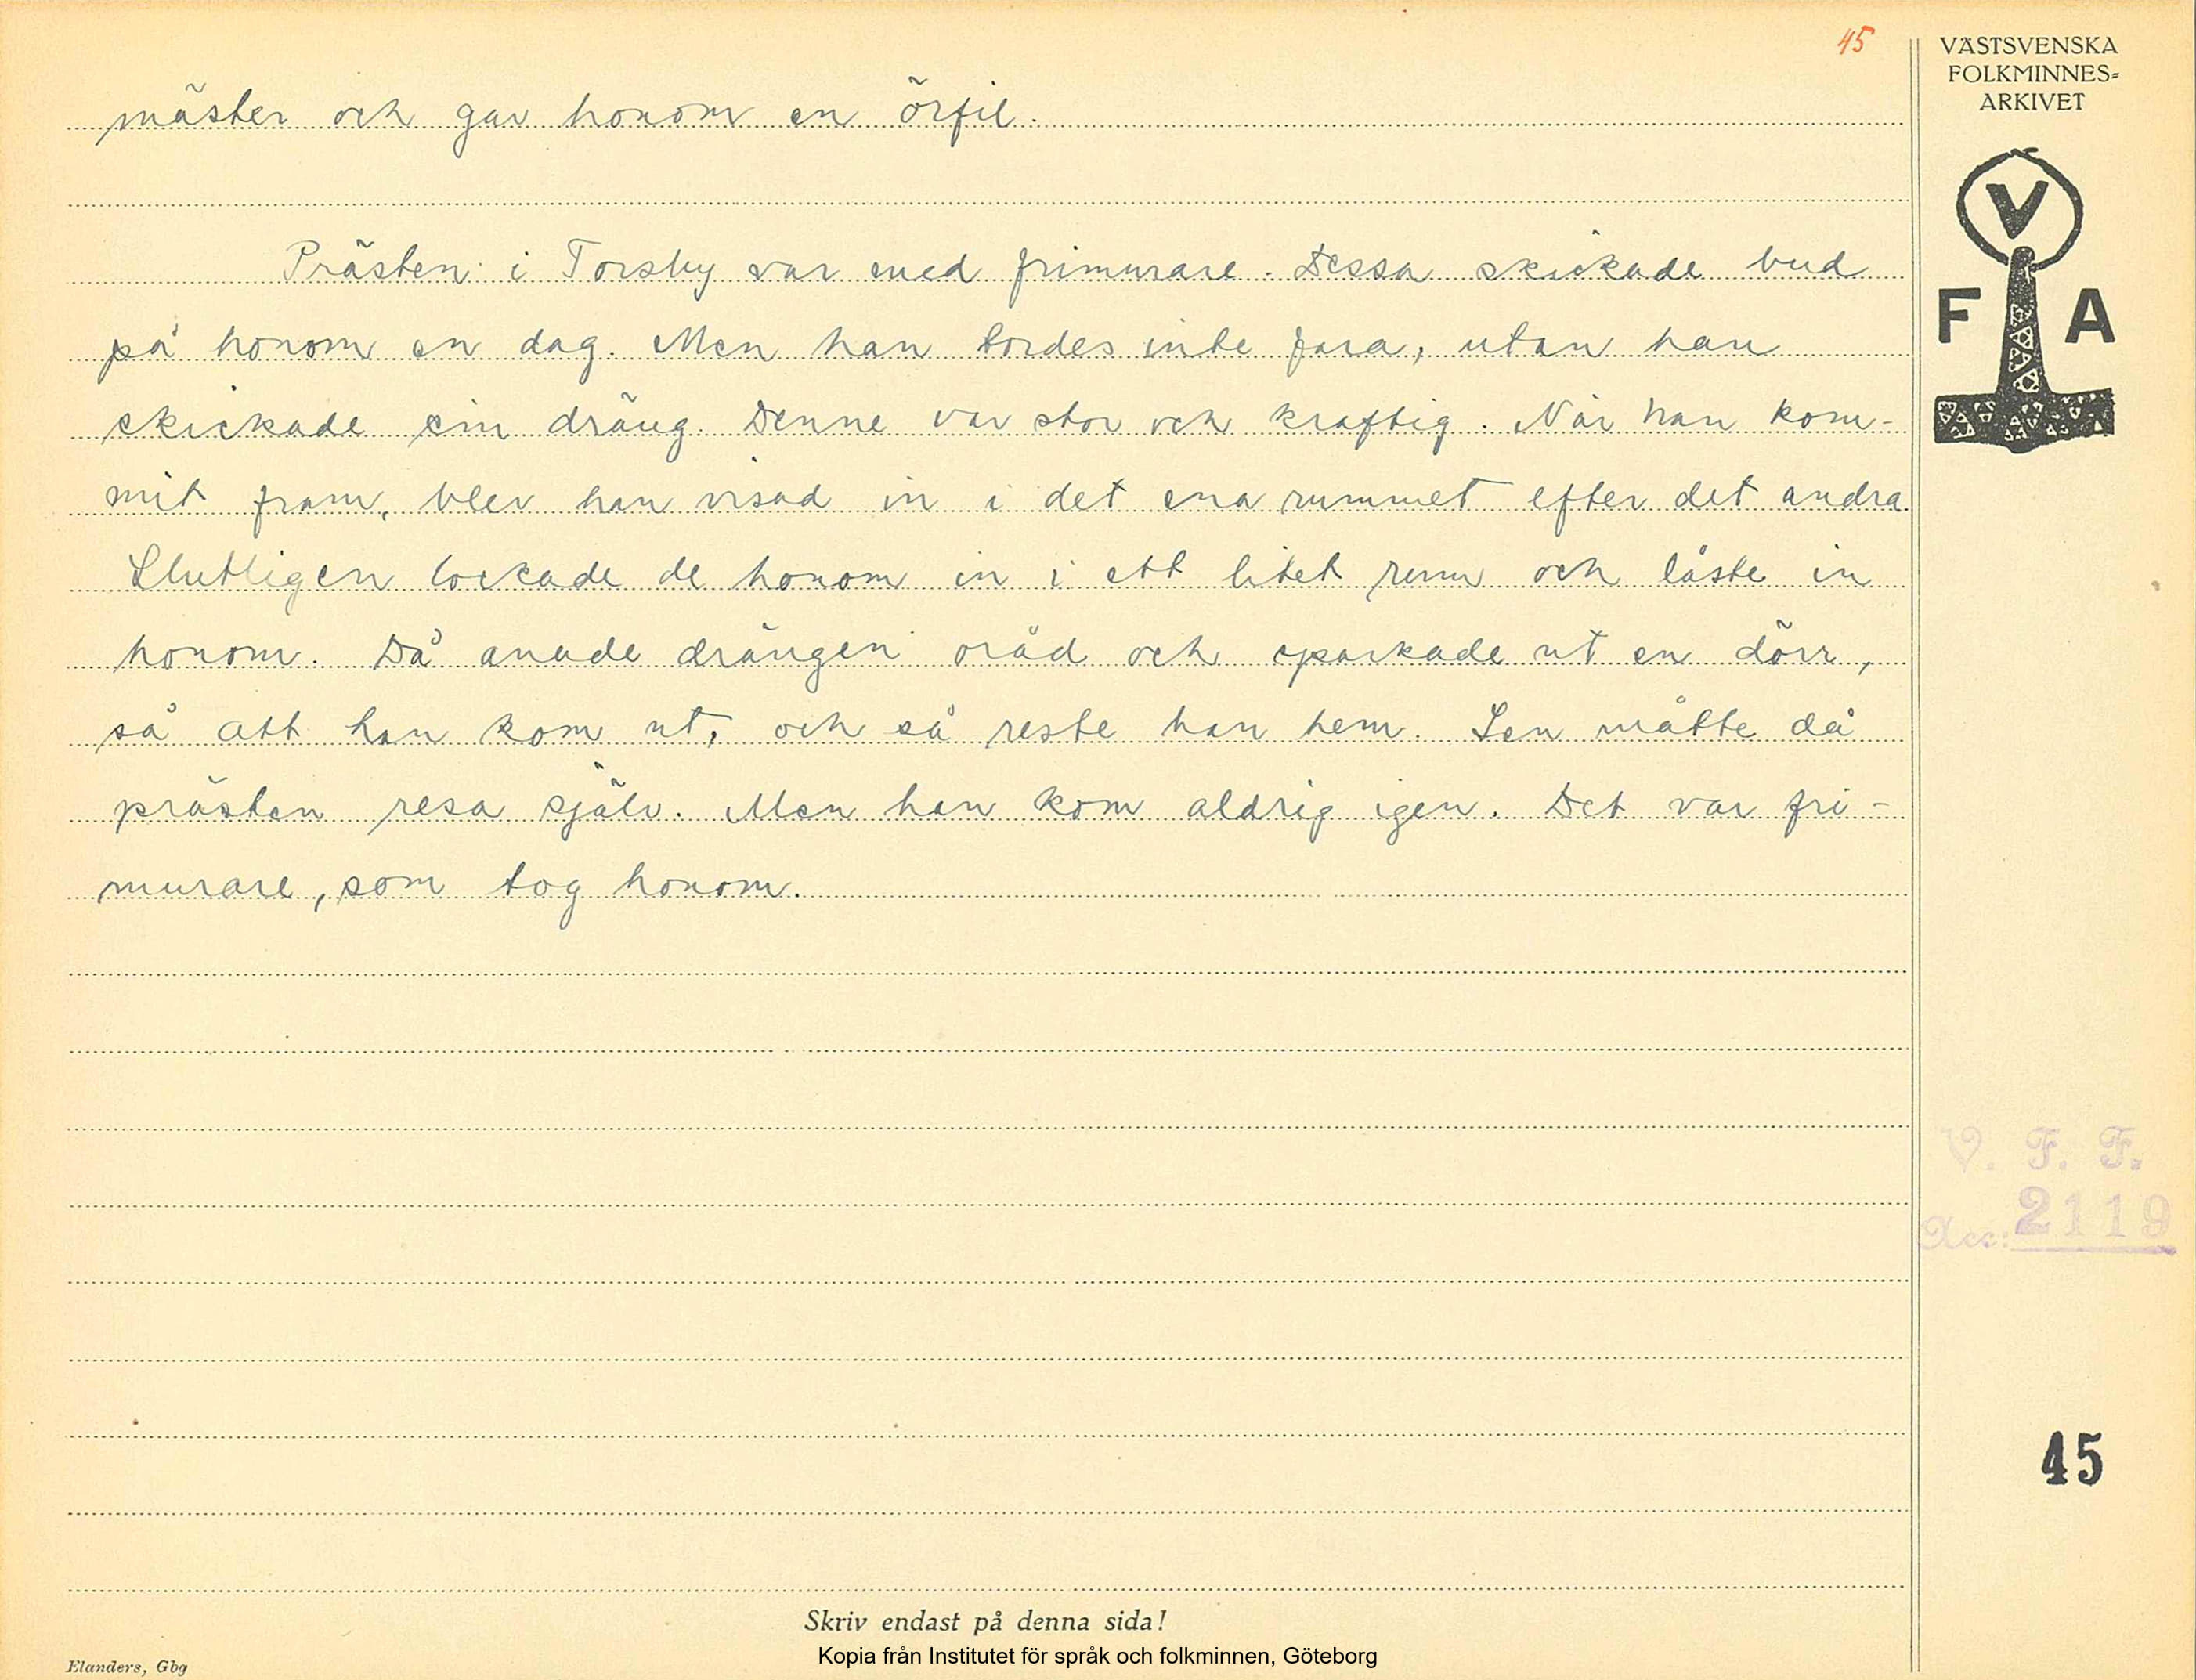 45
VÄSTSVENSKA
FOLKMINNES=
ARKIVET
V
F A
mäster och gav honom en örfil.
Prästen i Torsby var med frimurare. Dessa skickade bud
på honom en dag. Men han tordes inte fara, utan han
skickade sin dräng. Denne var stor och kraftig. När han kom-
mit fram, blev han visad in i det ena rummet efter det andra.
Slutligen lockade de honom in i ett litet rum och låste in
honom. Då anade drängen oråd och sparkade ut en dörr,
så att han kom ut, och så reste han hem. Sen måtte då
prästen resa själv. Men han kom aldrig igen. Det var fri-
murare, som tog honom.
V. F. F.
Acc: 2119
45
Skriv endast på denna sida!
Kopia från Institutet för språk och folkminnen, Göteborg
Elanders, Gbg